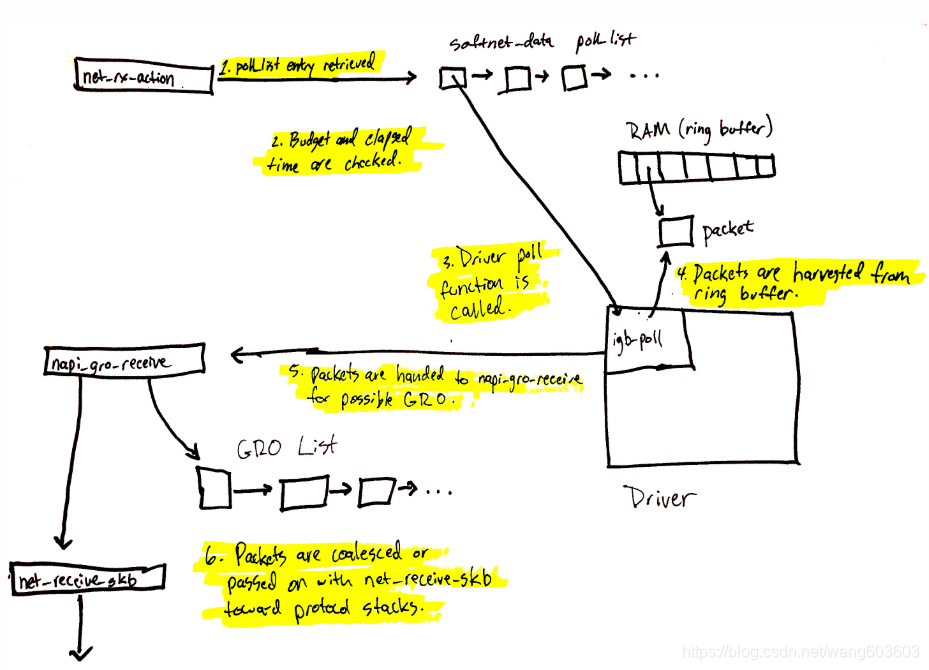 softnet_data poll_list
net_rx_action
1. poll_list entry retrieved
...
2. Budget and elapsed
time are checked.
RAM (ring buffer)
packet
3. Driver poll
function is
called.
4. Packets are harvested from
ring buffer.
igb_poll
napi_gro_receive
5. packets are handed to napi_gro_receive
for possible GRO.
GRO List
...
Driver
6. Packets are coalesced or
passed on with net_receive_skb
toward protocol stacks.
net_receive_skb
https://blog.csdn.net/wang603603